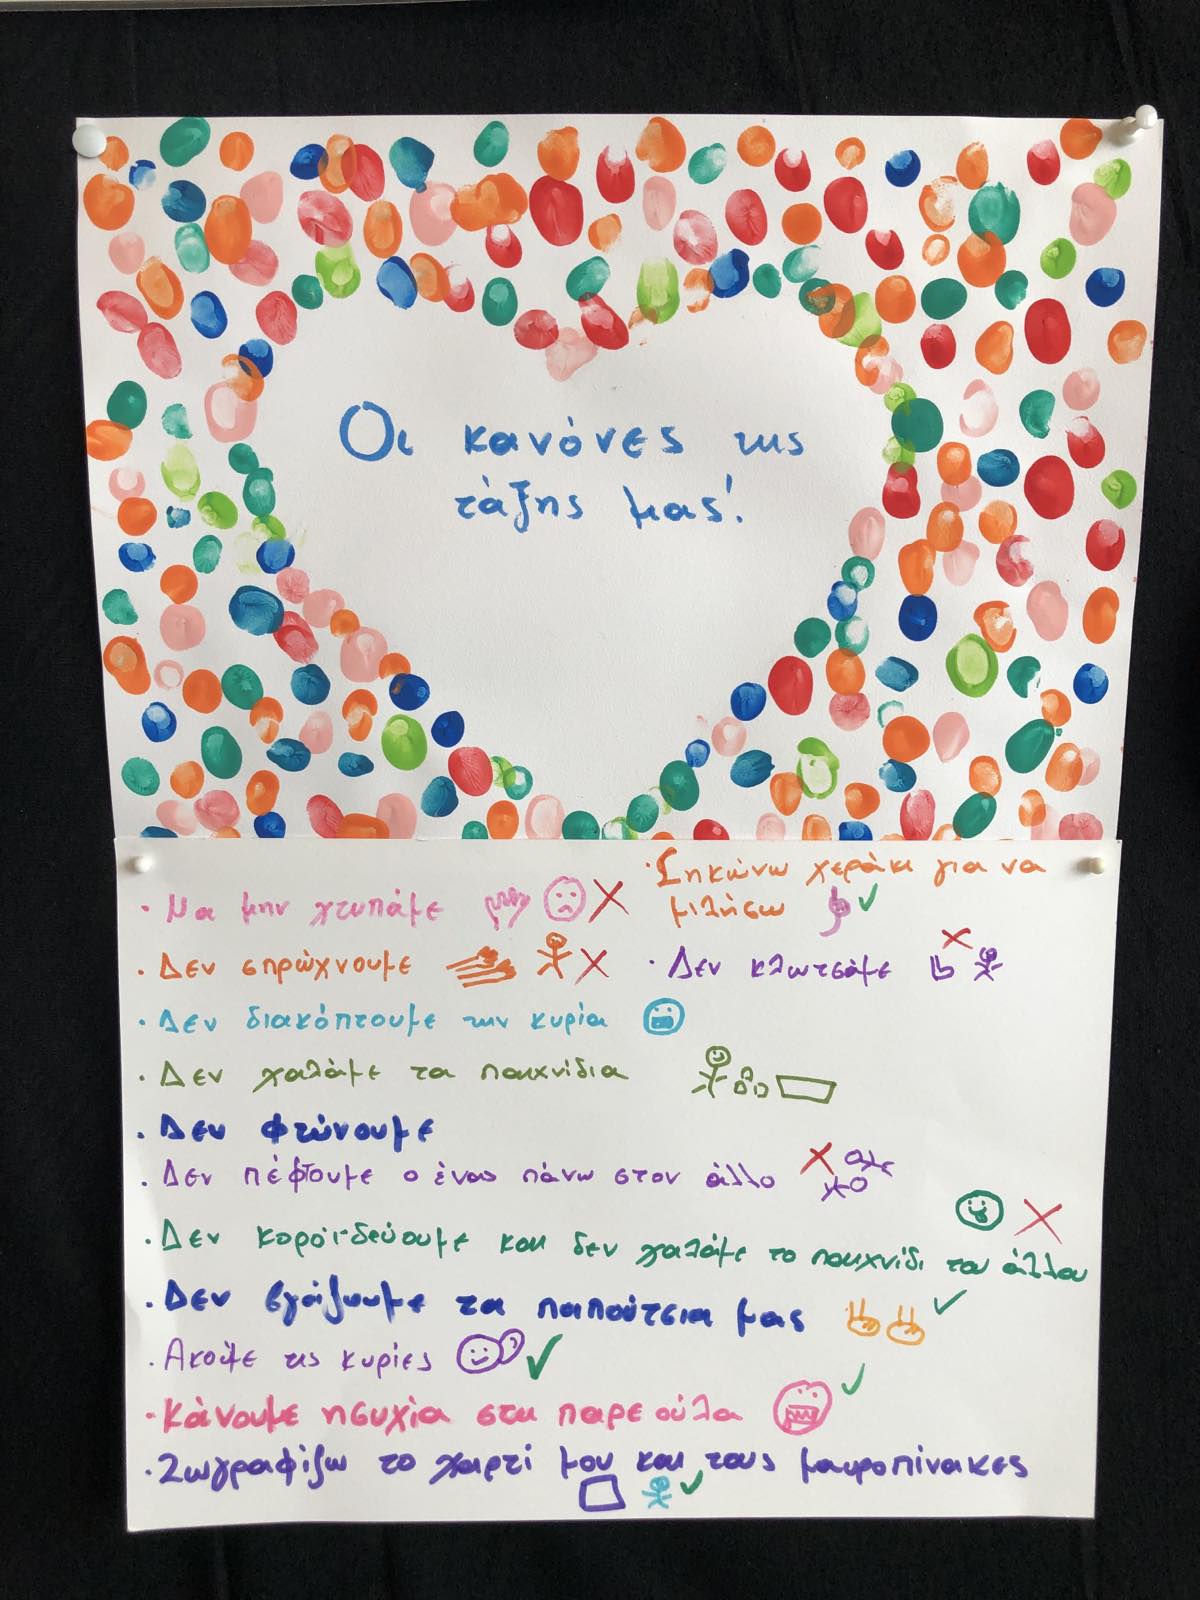 Οι κανόνες της
τάξης μας!
· Να μην χτυπάμε
· Σηκώνω χεράκι για να
μιλήσω
· Δεν σπρώχνουμε
· Δεν κλωτσάμε
· Δεν διακόπτουμε την κυρία
· Δεν χαλάμε τα παιχνίδια
· Δεν φτύνουμε
· Δεν πέφτουμε ο ένας πάνω στον άλλο
· Δεν κοροϊδεύουμε και δεν χαλάμε το παιχνίδι του άλλου
· Δεν βγάζουμε τα παπούτσια μας
· Ακούμε τις κυρίες
· Κάνουμε ησυχία στη παρεούλα
· Ζωγραφίζω το χαρτί μου και τους μαυροπίνακες